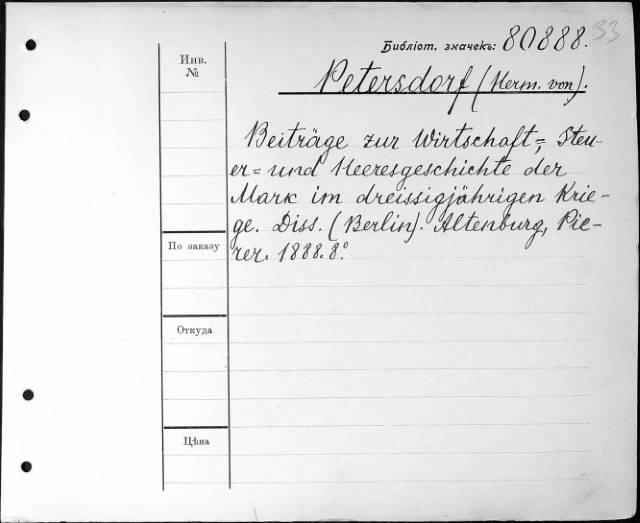 33
Библіот. значекъ: 80888.
Инв.
№
Petersdorf (Herm. von).
Beiträge zur Wirtschaft=, Steu-
er= und Heeresgeschichte der
Mark im dreissigjährigen Krie-
ge. Diss. (Berlin). Altenburg, Pie-
rer. 1888. 8.°
По заказу
Откуда
Цѣна